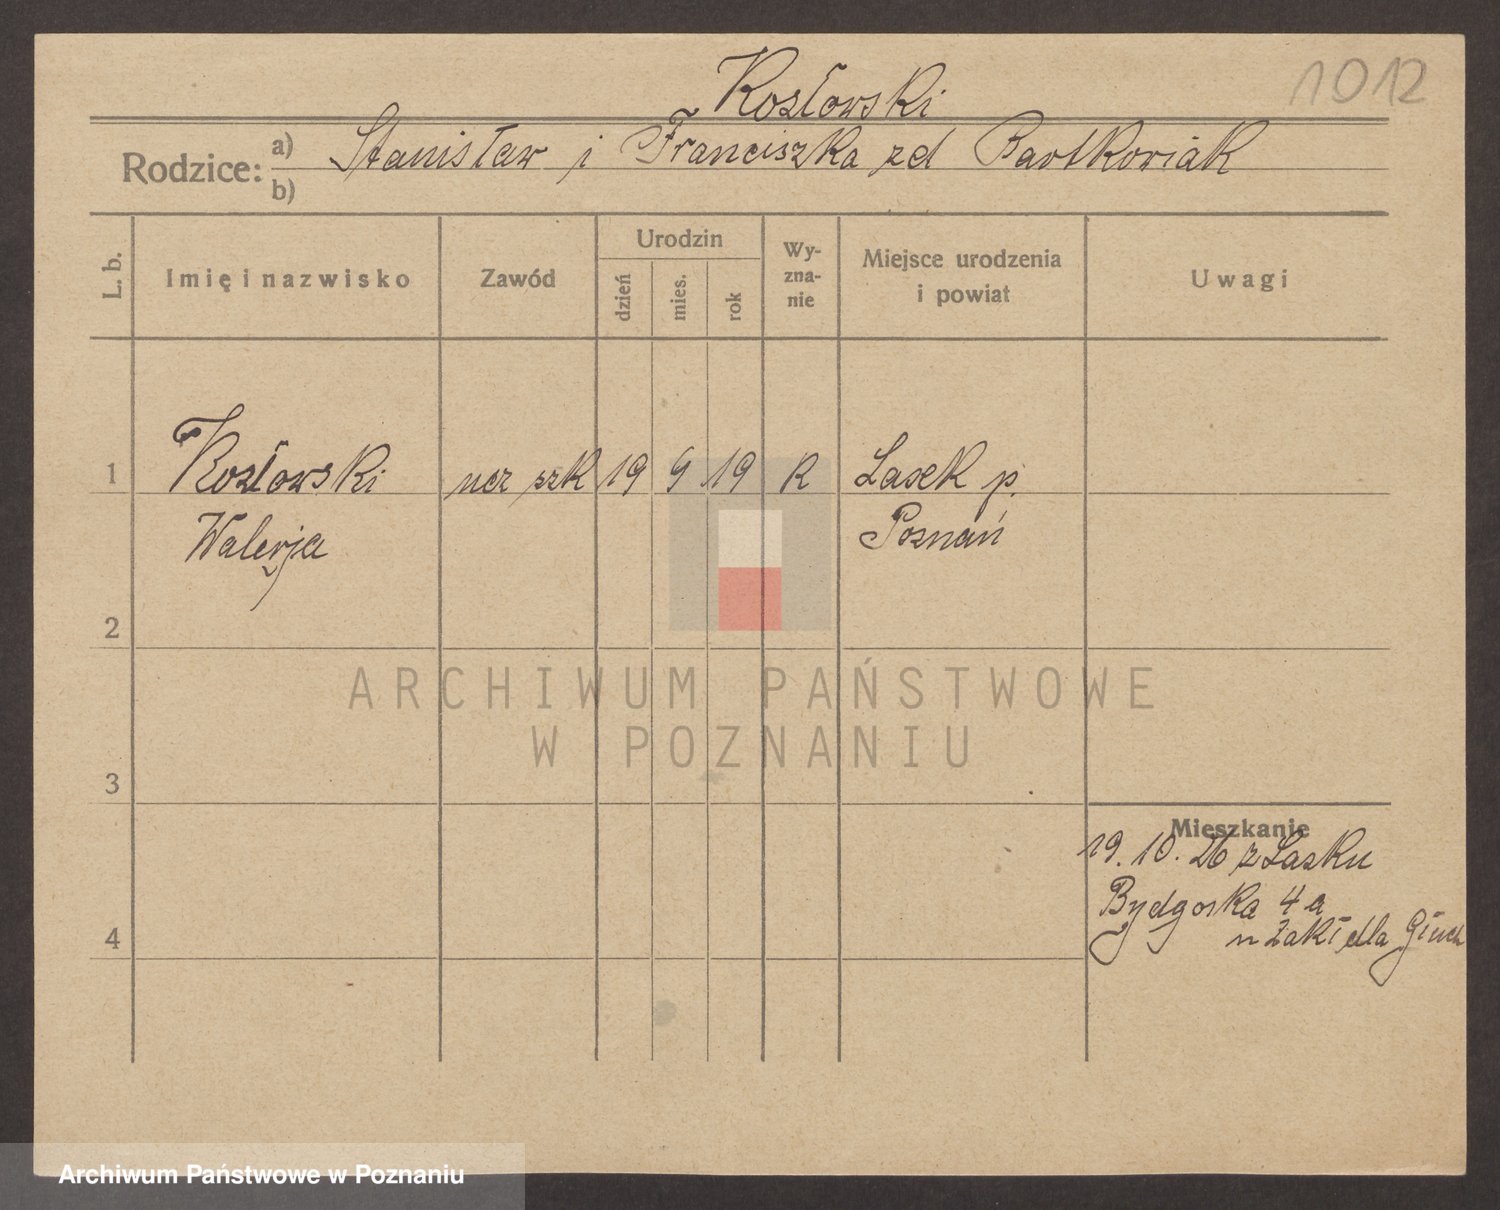 1012
Kozłowski
Rodzice:
a) Stanisław i Franciszka zd Bartkowiak
b)
L. b.
Imię i nazwisko
Zawód
Urodzin
dzień
mies.
rok
Wy-
zna-
nie
Miejsce urodzenia
i powiat
Uwagi
1 Kozłowski ucz szk 19 9 19 R Lasek p.
Walerja Poznań
2
ARCHIWUM PAŃSTWOWE
W POZNANIU
3
Mieszkanie
19. 10. 26 z Lasku
Bydgoska 4 a
4
w Zakł dla Głuch
Archiwum Państwowe w Poznaniu